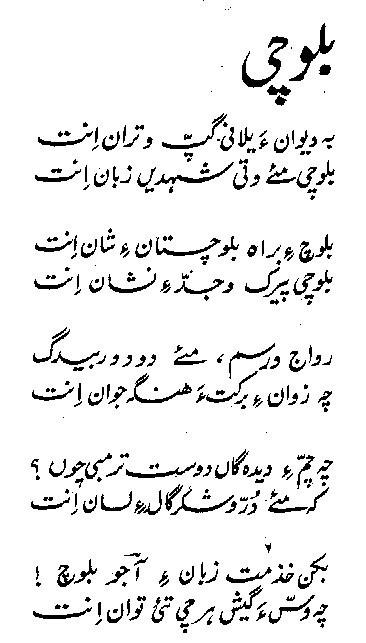 بلوچی
بہ دیوان ءَ یلانی گپّ و تران اِنت
بلوچی مئے وتی شہدیں زبان اِنت
بلوچ ءِ براہ بلوچستان ءِ شان اِنت
بلوچی پیرک و جدّ ءِ نشان اِنت
رواج و رسم، مئے دود و ربیدگ
چہ زوان ءِ برکت ءَ ھنگہ جوان اِنت
چہ چمّ ءِ دیدہ گاں دوست ترمبی چوں ؟
کہ مئے دُرّ و شکر گال ءِ لسان اِنت
بکن خذمت زبان ءِ آجو بلوچ !
چہ وسّ ءَ گیش ہرچی تئی توان اِنت